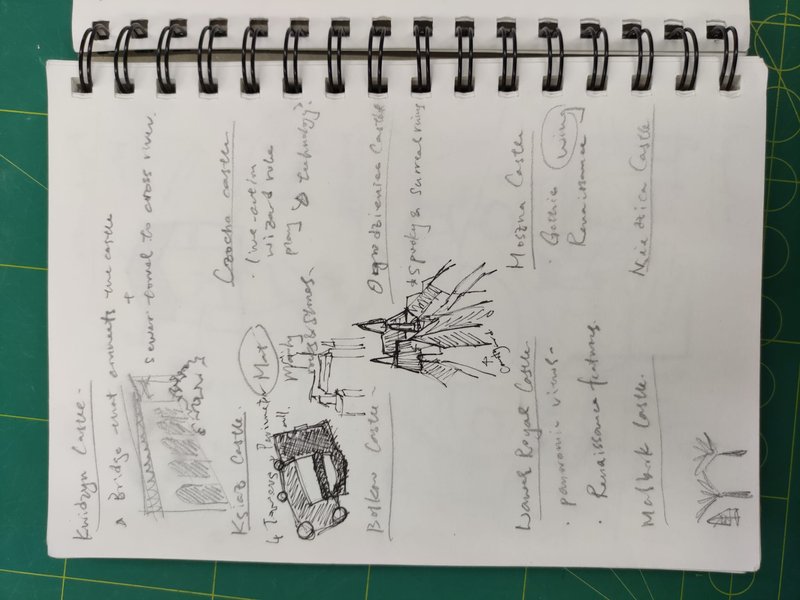 Kwidzyn Castle.
A Bridge that connects the castle
+
sewer towel to cross river.
Ksiaz Castle.
4 Towers & Perimeter
wall.
Mat.
Mainly
rocks & stones
Czocha castle
· live-action
wizard role
play & technology?
Bolkow Castle
Ogrodzieniec Castle
* Spooky & surreal ruins
4
Wawel Royal Castle
· panoramic views
· Renaissance features.
Moszna Castle
· Gothic wing
Renaissance
Malbork Castle.
Niedzica Castle